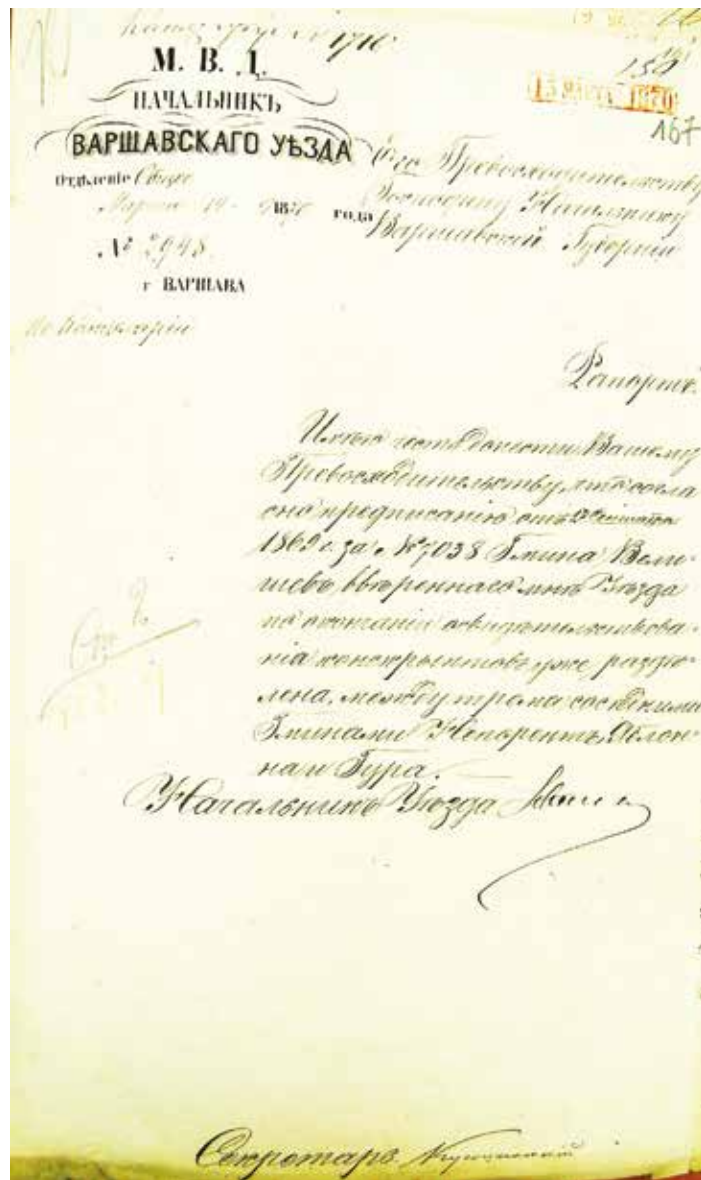 № 1716
М. В. Д.
НАЧАЛЬНИКЪ
ВАРШАВСКАГО УѢЗДА
Отдѣленіе
Марта 14 1870 года
№ 2948
г ВАРШАВА
15 МАРТА 1870
167
Его Превосходительству
Господину Начальнику
Варшавской Губерніи
Рапортъ.
Имѣю честь донести Вашему
Превосходительству, что согла
сно предписанію отъ
1869 г. за № 7038 Гмина Вели-
шевъ, ввѣреннаго мнѣ Уѣзда
по окончаніи освидѣтельствова-
нія конскриптовъ уже раздѣ-
лена, между трема сосѣдними
Гминами Непорентъ, Яблон-
на и Гура.
Начальникъ Уѣзда
Секретарь